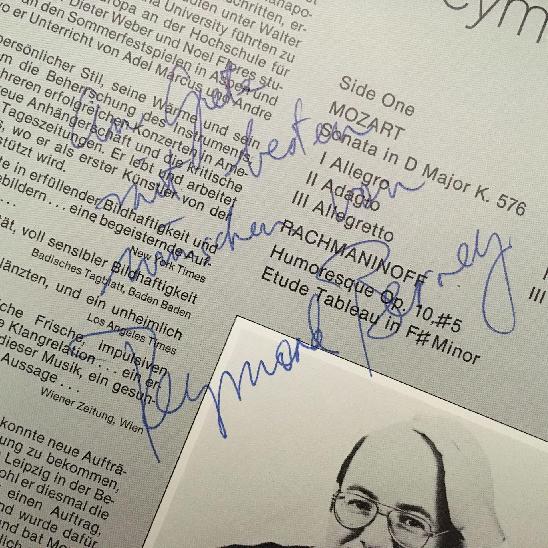 Schritten, er-
anapo-
ıdaufen unter Walter
nd University führten zu
ropa an der Hochschule für
Dieter Weber und Noel Flores stu-
an den Sommerfestspielen in Aspen und
vo er Unterricht von Adel Marcus und Andre
persönlicher Stil, seine Wärme und sein
m die Beherrschung des Instruments.
hreren erfolgreichen Konzerten in Ame-
eue Anhängerschaft und die kritische
Tageszeitungen. Er lebt und arbeitet
wo er als erster Künstler von der
stützt wird.
te in erfüllender Bildhaftigkeit und
bildern ... eine begeisternde Auf-
New York Times
tät, voll sensibler Bildhaftigkeit
Badisches Tagblatt, Baden Baden
länzten, und ein unheimlich
Los Angeles Times
che Frische, impulsiven
e Klangrelation ... ein er
dieser Musik, ein gesun-
Aussage ...
Wiener Zeitung, Wien
konnte neue Aufträ-
ung zu bekommen,
Leipzig in der Be-
ohl er diesmal die
einen Auftrag,
nd wurde dafür
nd bat Me
eym
Side One
MOZART
Sonata in D Major K. 576
I Allegro
II Adagio
III Allegretto
RACHMANINOFF
Humoresque Op. 10,#5
Etude Tableau in F# Minor
I
III
mit besten
Wünschen von
Reymond Berney